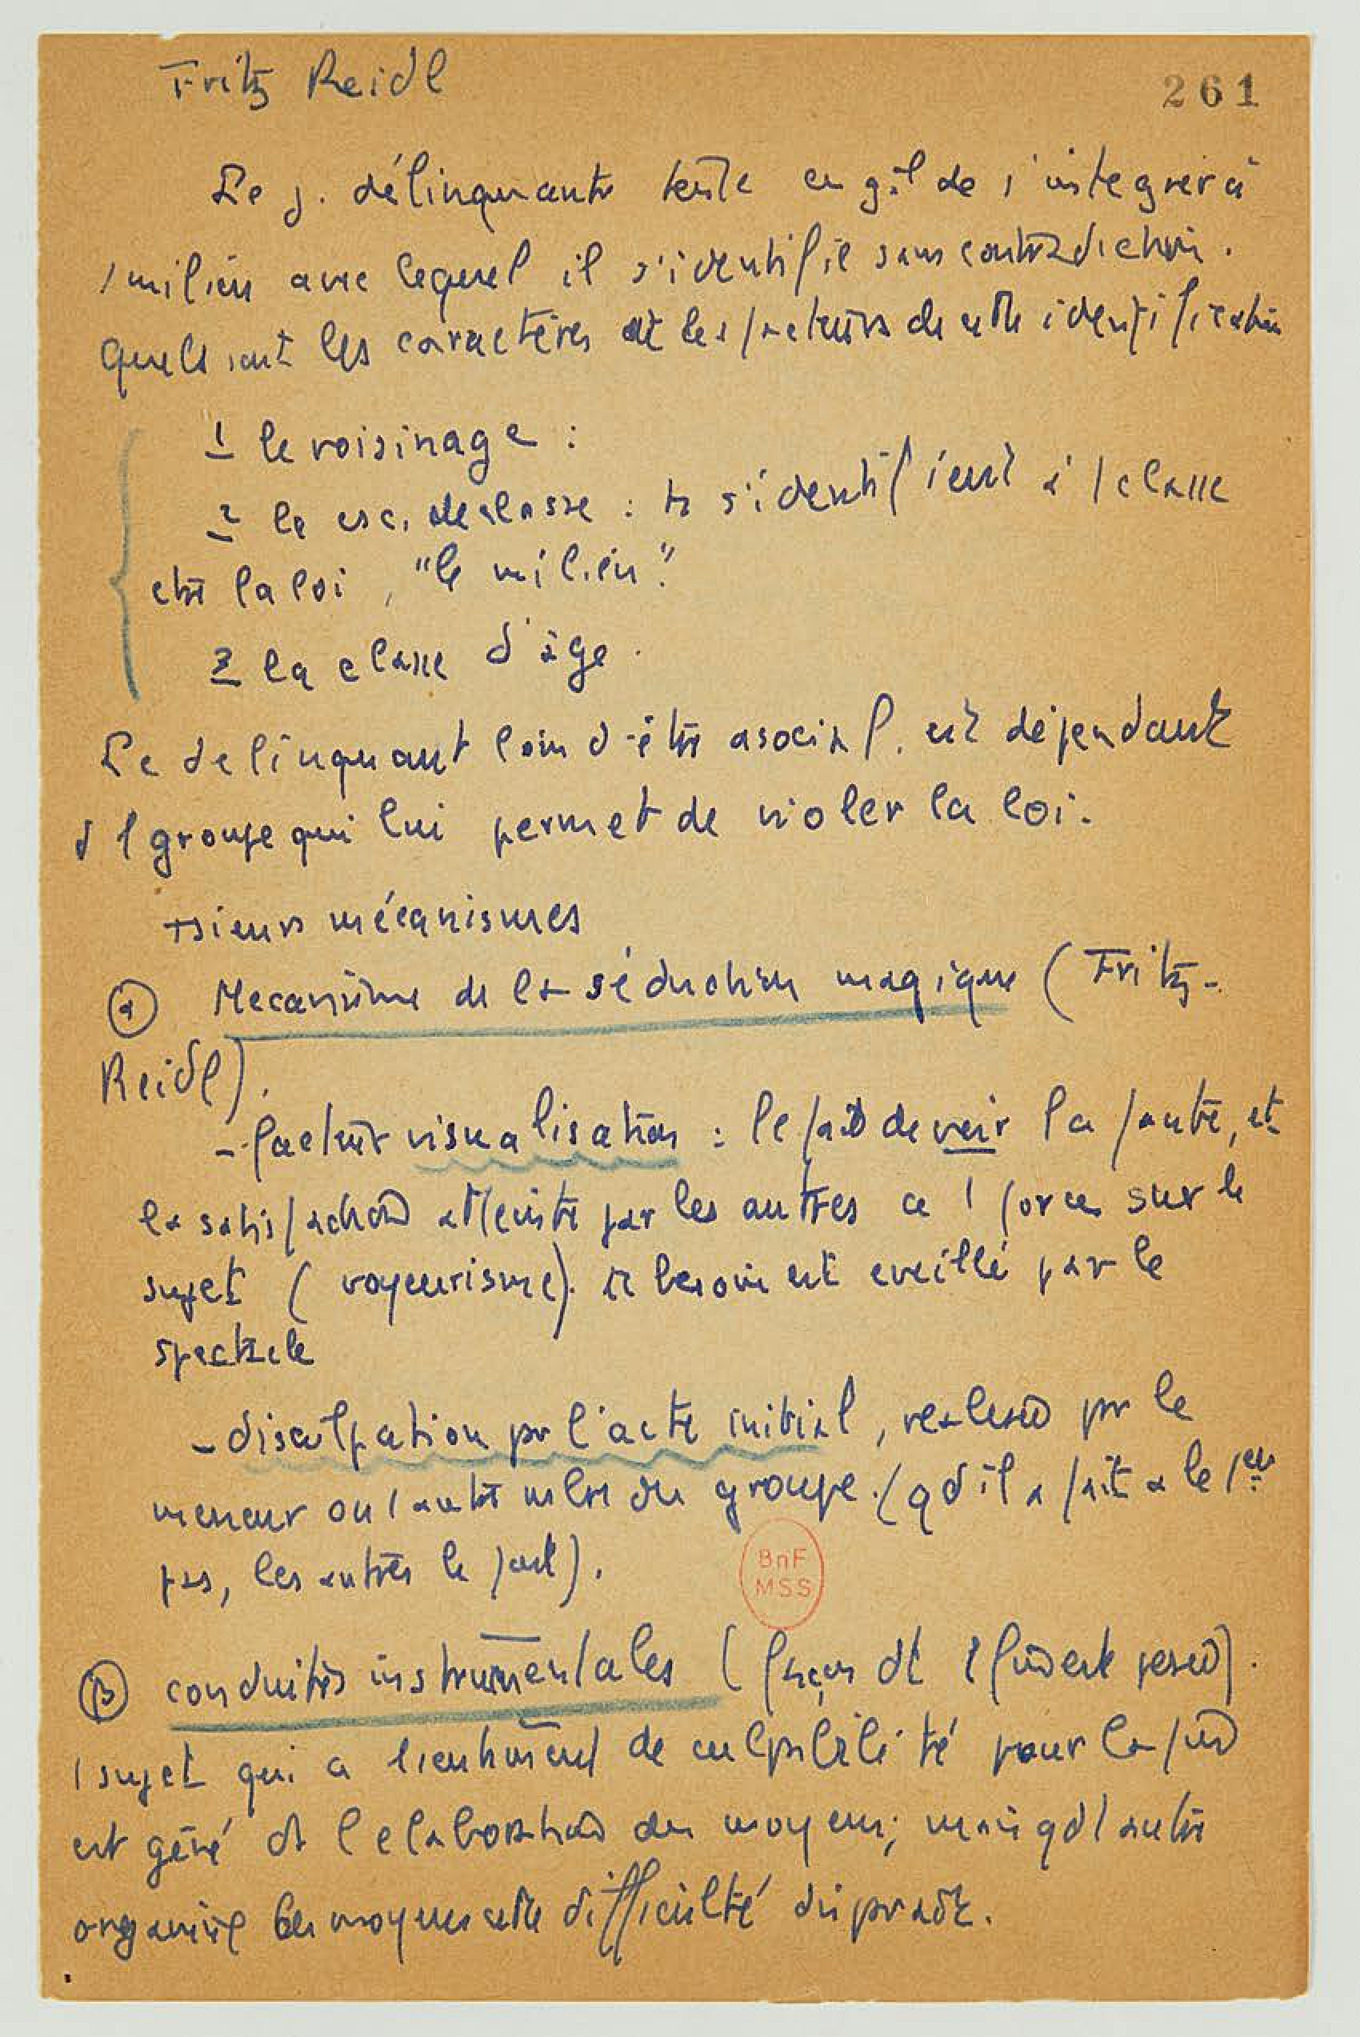 Fritz Reidl
261
Le j. délinquant tente en gal de s'intégrer à
1 milieu avec lequel il s'identifie sans contradiction.
Quels sont les caractères et les facteurs de cette identification
1 le voisinage :
2 la csc. de classe : ts s'identifient à 1 classe
ctre la loi, "le milieu".
3 la classe d'âge.
Le delinquant loin d'être asocial, est dépendant
d 1 groupe qui lui permet de violer la loi.
+sieurs mécanismes
α Mecanisme de la séduction magique (Fritz-
Reidl).
- facteur visualisation : le fait de voir la faute, et
la satisfaction atteinte par les autres a 1 force sur le
sujet (voyeurisme). le besoin est eveillé par le
spectacle
- disculpation pr l'acte initial, réalisé pr le
meneur ou 1 autre mbre du groupe. (qd il a fait le 1er
pas, les autres le font).
β conduites instrumentales (façon dt
1 sujet qui a 1 sentiment de culpabilité pour la fin
est gêné ds l'elaboration des moyens; mais qd 1 autre
organise les moyens cette difficulté disparaît.
BnF
MSS